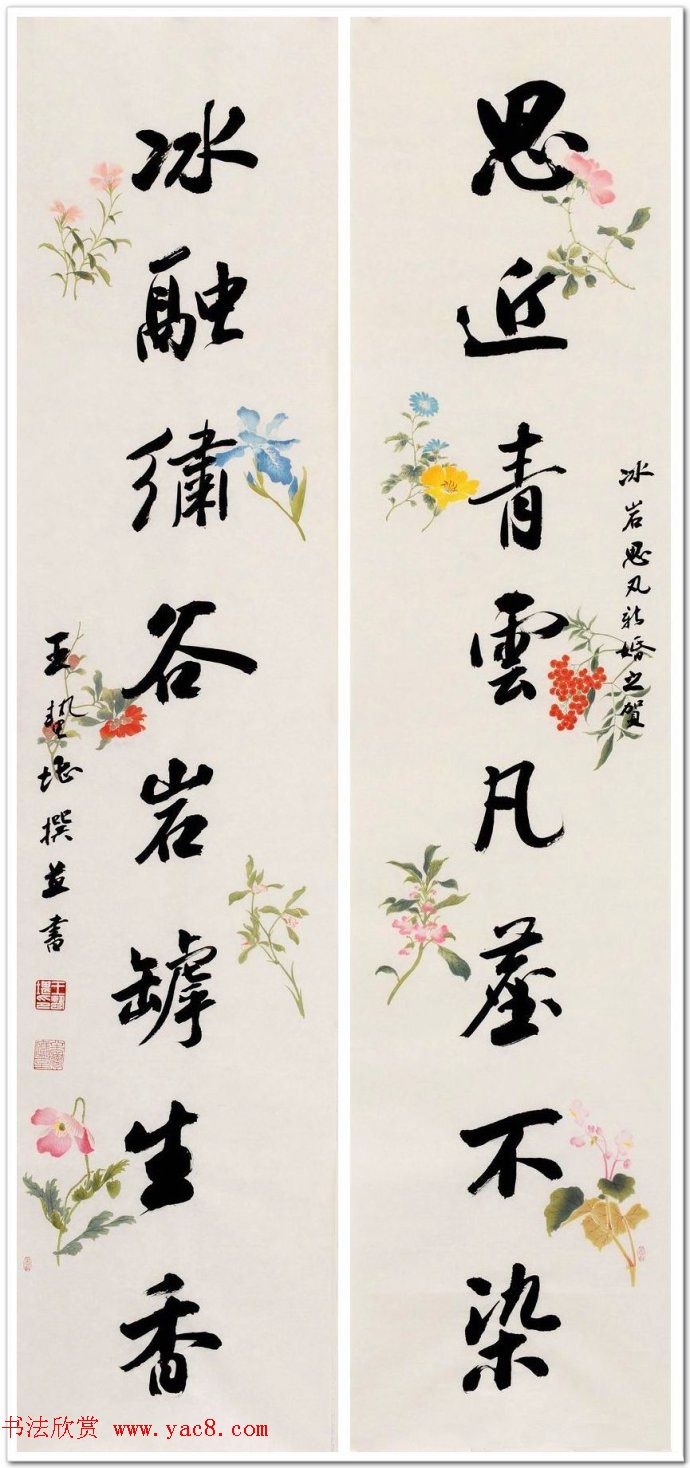 冰岩思凡新婚之賀
思近青雲凡塵不染
冰融繡谷岩罅生香
王蟄堪撰並書
书法欣赏 www.yac8.com